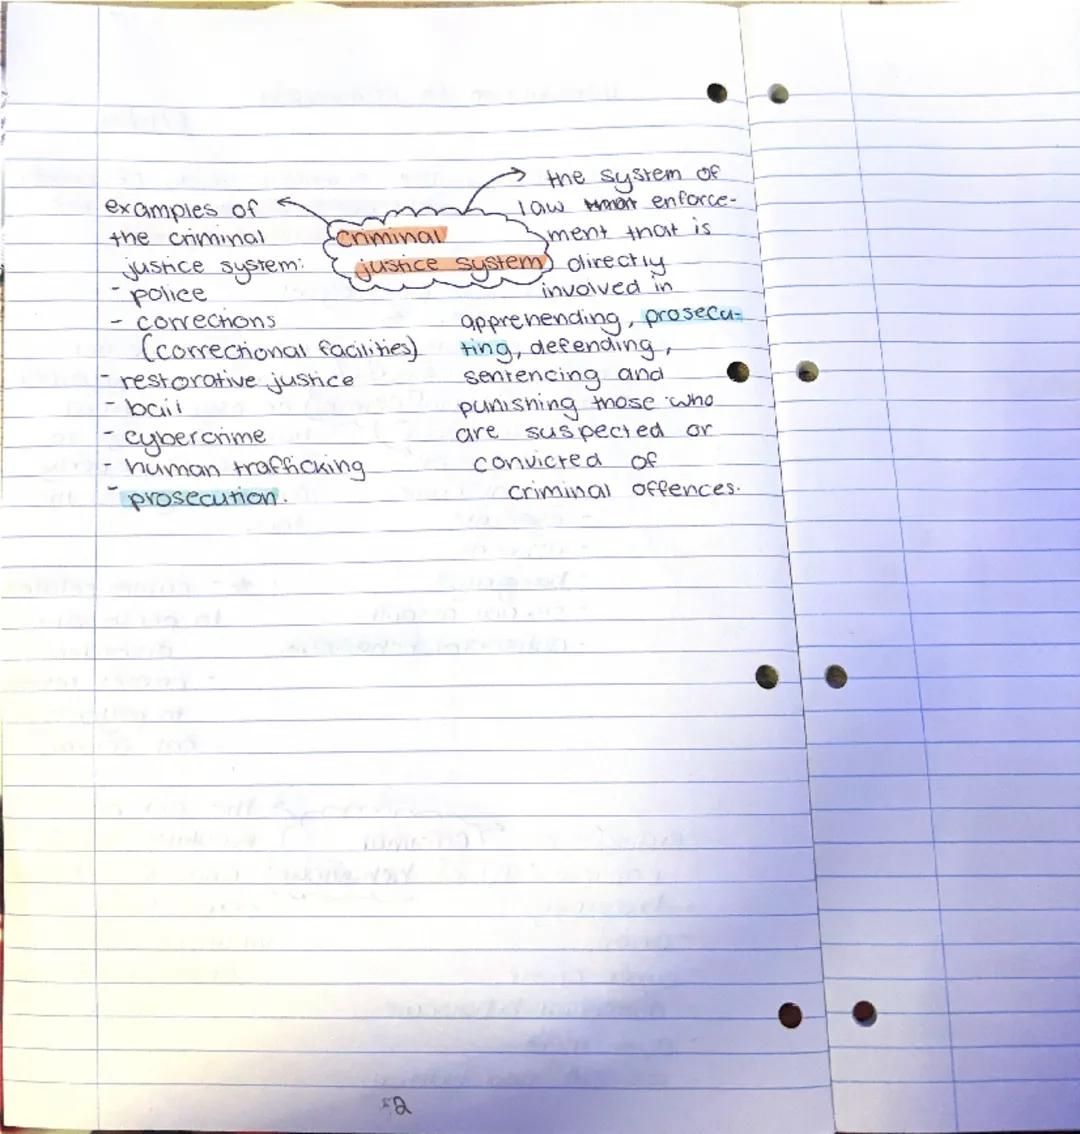 examples of
the criminal
justice system:
- police
- corrections
(correctional facilities)
- restorative justice
- bail
- cybercrime
- human trafficking
- prosecution.
criminal
justice system
the system of
law enforce-
ment that is
directly
involved in
apprehending, prosecu-
ting, defending,
sentencing and
punishing those who
are suspected or
convicted of
criminal offences.
2